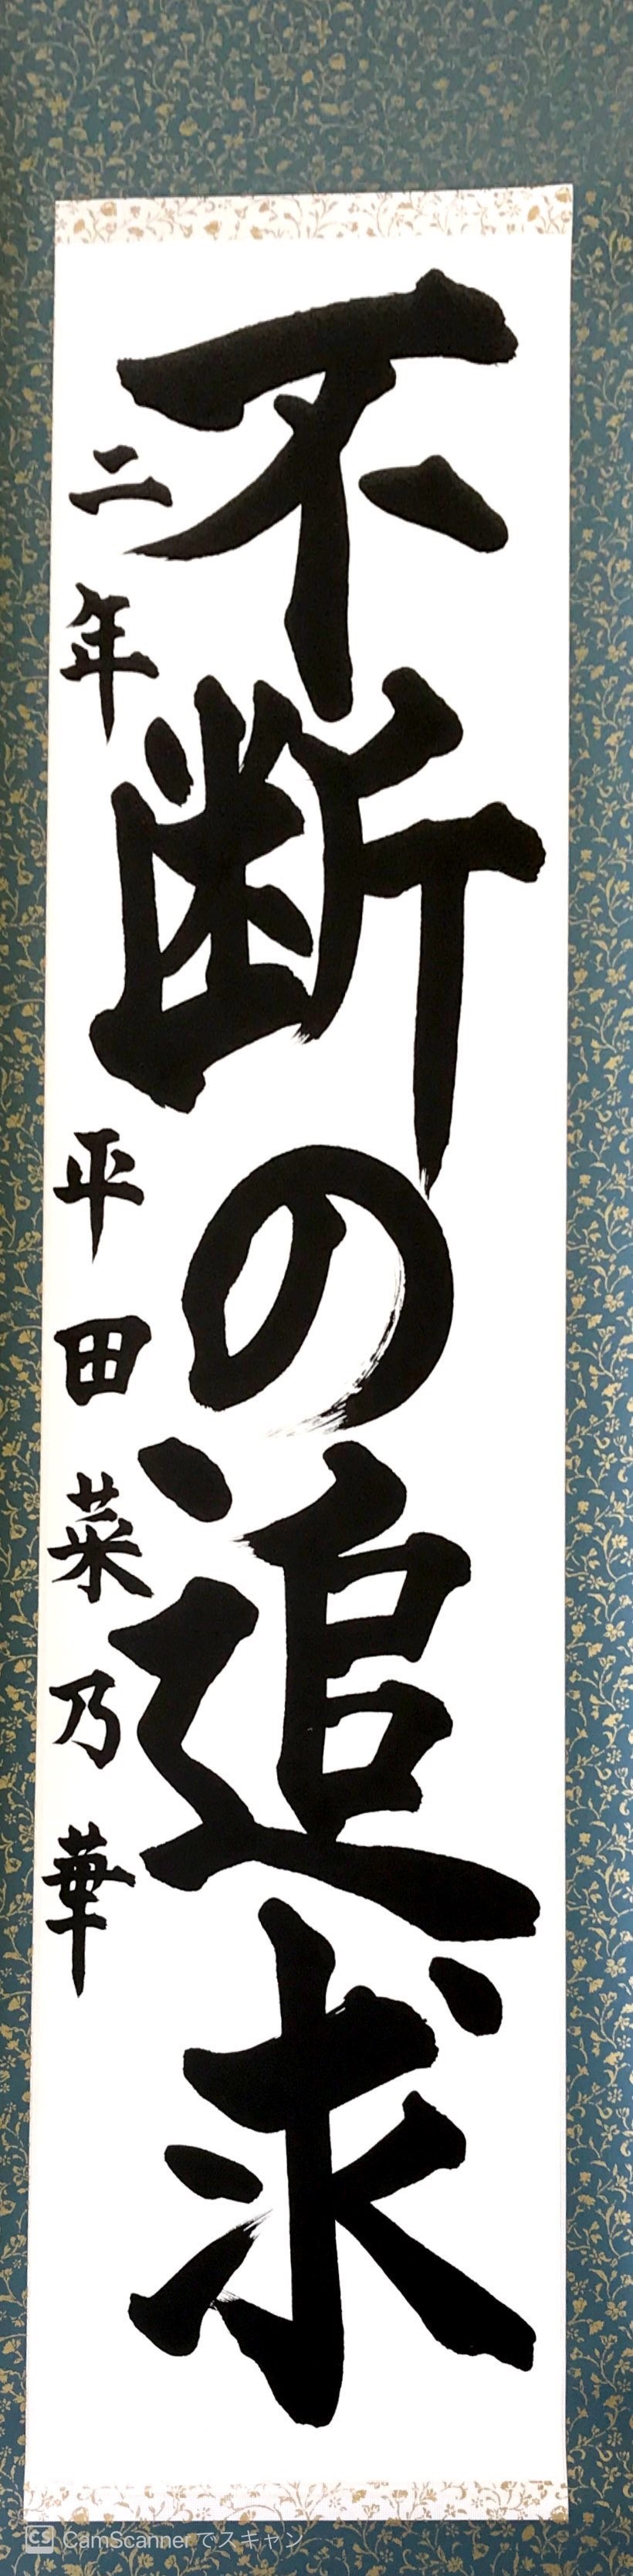 不断の追求
二年 平田菜乃華
CS CamScannerでスキャン